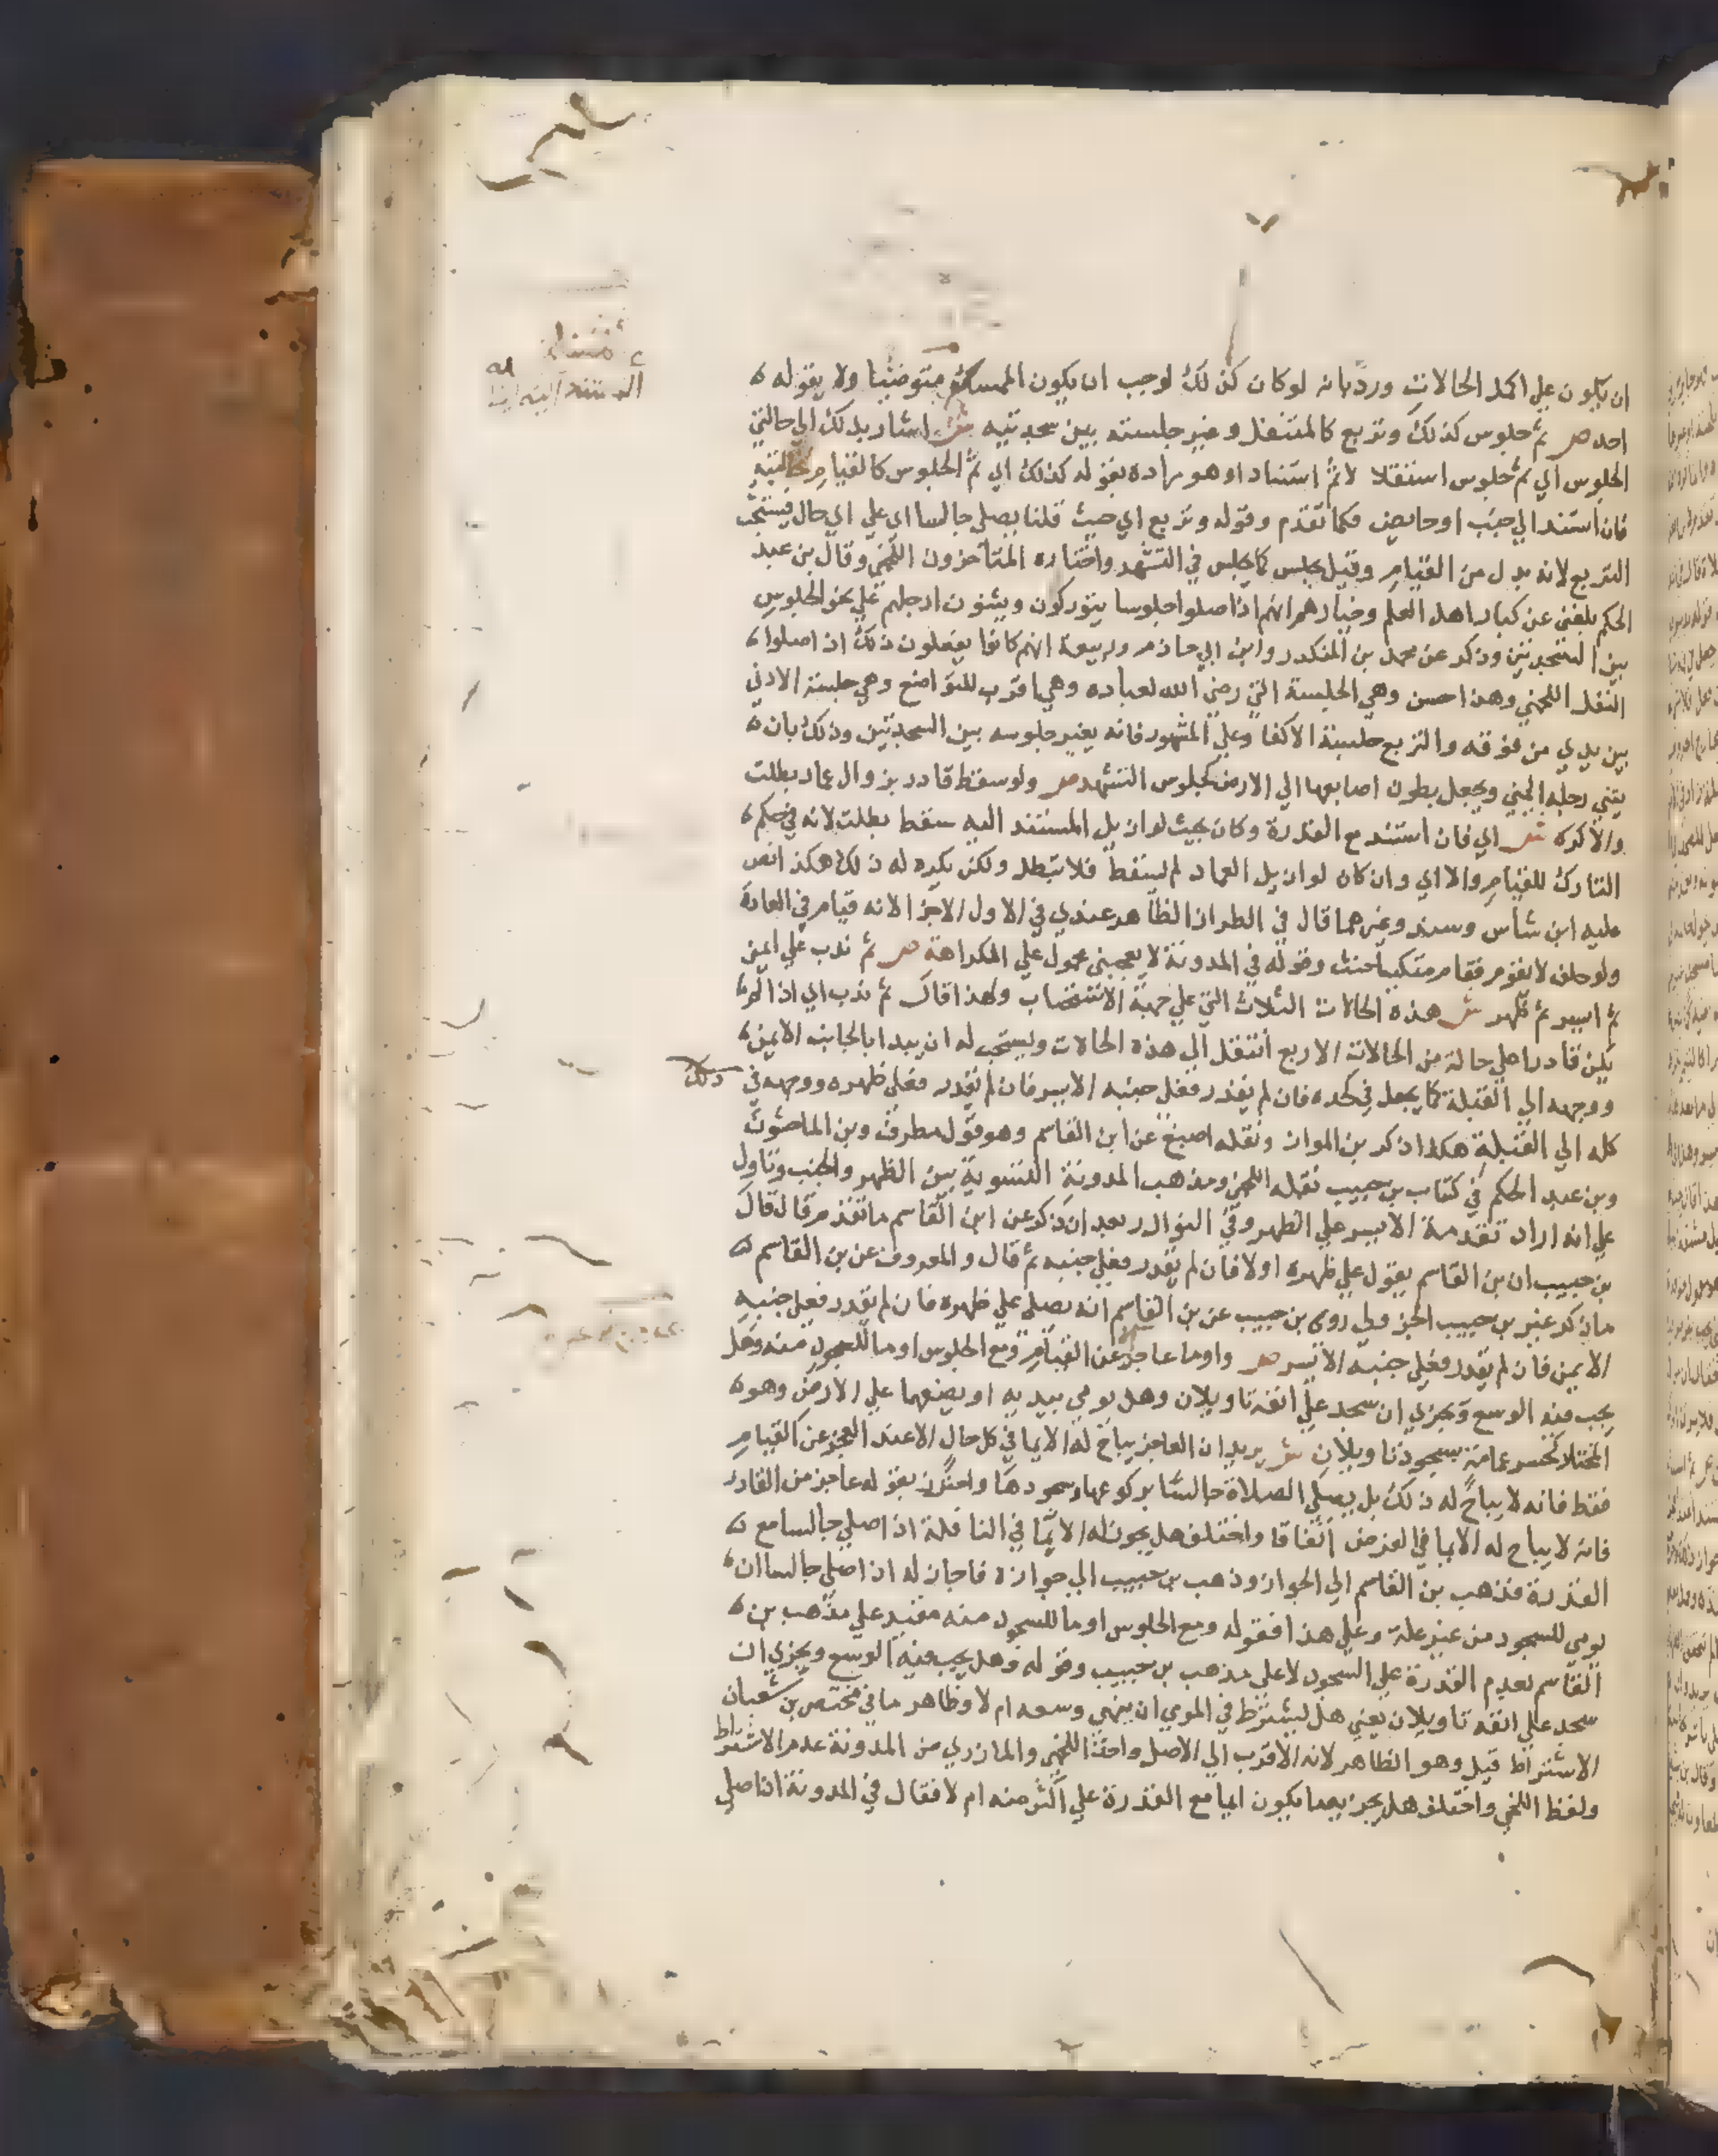 ان يكون علي اكمل الحالات ورد بانه لو كان كذلك لوجب ان يكون الممسك متوضيا ولا يقوله
احد ص ثم جلوس كذلك وتربع كالمتنفل وغير جلسته بين سجدتيه ش اشار بذلك الي حالتي
الجلوس اي ثم جلوس استقلالا ثم استنادا وهو مراده بقوله كذلك اي ثم الجلوس كالقيام بحالتيه
فان استند الي جنب او حايض فكما تقدم وقوله وتربع اي حيث قلنا يصلي جالسا اي علي اي حال فيستحب
التربع لانه بدل من القيام وقيل يجلس كما يجلس في التشهد واختاره المتاخرون اللخمي وقال بن عبد
الحكم بلغني عن كبار اهل العلم وخيارهم انهم اذا صلوا جلوسا يتوركون ويثنون ارجلهم علي نحو الجلوس
بين السجدتين وذكر عن محمد بن المنكدر وابن ابي حازم وربيعة انهم كانوا يفعلون ذلك اذا صلوا
النفل اللخمي وهذا احسن وهي الجلسة التي رضي الله لعباده وهي اقرب للتواضع وهي جلسة الادني
بين يدي من فوقه والتربع جلسة الاكفا وعلي المشهور فانه يغير جلوسه بين السجدتين وذلك بانه
يثني رجله اليمني ويجعل بطون اصابعها الي الارض كجلوس التشهد ص ولو سقط قادر بزوال عماد بطلت
والا كره ش اي فان استند مع القدرة وكان بحيث لو ازيل المستند اليه سقط بطلت لانه في حكم
التارك للقيام والا اي وان كان لو ازيل العماد لم يسقط فلا تبطل ولكن يكره له ذلك هكذا نص
عليه ابن شاس وسند وغيرهما قال في الطراز الظاهر عندي في الاول الاجزا لانه قيام في العادة
ولو حلف لا يقوم فقام متكيا حنث وقوله في المدونة لا يعجبني محمول علي الكراهة ص ثم ندب علي ايمن
ثم ايسر ثم ظهر ش هذه الحالات الثلاث التي علي جهة الانتصاب ولهذا قال ثم ندب اي اذا لم
يكن قادرا علي حالة من الحالات الاربع انتقل الي هذه الحالات ويستحب له ان يبدا بالجانب الايمن
ووجهه الي القبلة كما يجعل في لحده فان لم يقدر فعلي جنبه الايسر فان لم يقدر فعلي ظهره ووجهه في ذلك
كله الي القبلة هكذا ذكر بن المواز ونقله اصبغ عن ابن القاسم وهو قول مطرف وبن الماجشون
وبن عبد الحكم في كتاب بن حبيب نقله اللخمي ومذهب المدونة التسوية بين الظهر والجنب وتاول
علي انه اراد تقدمة الايسر علي الظهر وفي النوادر بعد ان ذكر عن ابن القاسم ما تقدم قال قال
بن حبيب ان بن القاسم يقول علي ظهره اولا فان لم يقدر فعلي جنبه ثم قال والمعروف عن بن القاسم
ما ذكر غير بن حبيب روي بن حبيب عن بن القاسم انه يصلي علي ظهره فان لم يقدر فعلي جنبه
الايمن فان لم يقدر فعلي جنبه الايسر ص واوما عاجز الا عن القيام ومع الجلوس اوما للسجود منه وهل
يجب فيه الوسع ويجزي ان سجد علي انفه تاويلان وهل يومي بيديه او يضعهما علي الارض وهو
المختار كحسر عمامته بسجود تاويلان ش يريد ان العاجز يباح له الايما في كل حال الا عند العجز عن القيام
فقط فانه لا يباح له ذلك بل يصلي الصلاة جالسا بركوعها وسجودها واحترز بقوله عاجز من القادر
فانه لا يباح له الايما في الفرض اتفاقا واختلف هل يجوز له الايما في النافلة اذا صلي جالسا مع
القدرة فذهب بن القاسم الي الجواز وذهب بن حبيب الي جوازه فاجاز له اذا صلي جالسا ان
يومي للسجود من غير علة وعلي هذا فقوله ومع الجلوس اوما للسجود منه مقيد علي مذهب بن
القاسم بعدم القدرة علي السجود لا علي مذهب بن حبيب وقوله وهل يجب فيه الوسع ويجزي ان
سجد علي انفه تاويلان يعني هل يشترط في المومي ان ينهي وسعه ام لا وظاهر ما في مختصر بن شعبان
الاشتراط قيل وهو الظاهر لانه الاقرب الي الاصل واخذ اللخمي والمازري من المدونة عدم الاشتراط
ولفظ اللخمي واختلف هل يجزيه ما يكون ايما مع القدرة علي اكثر منه ام لا فقال في المدونة اذا صلي